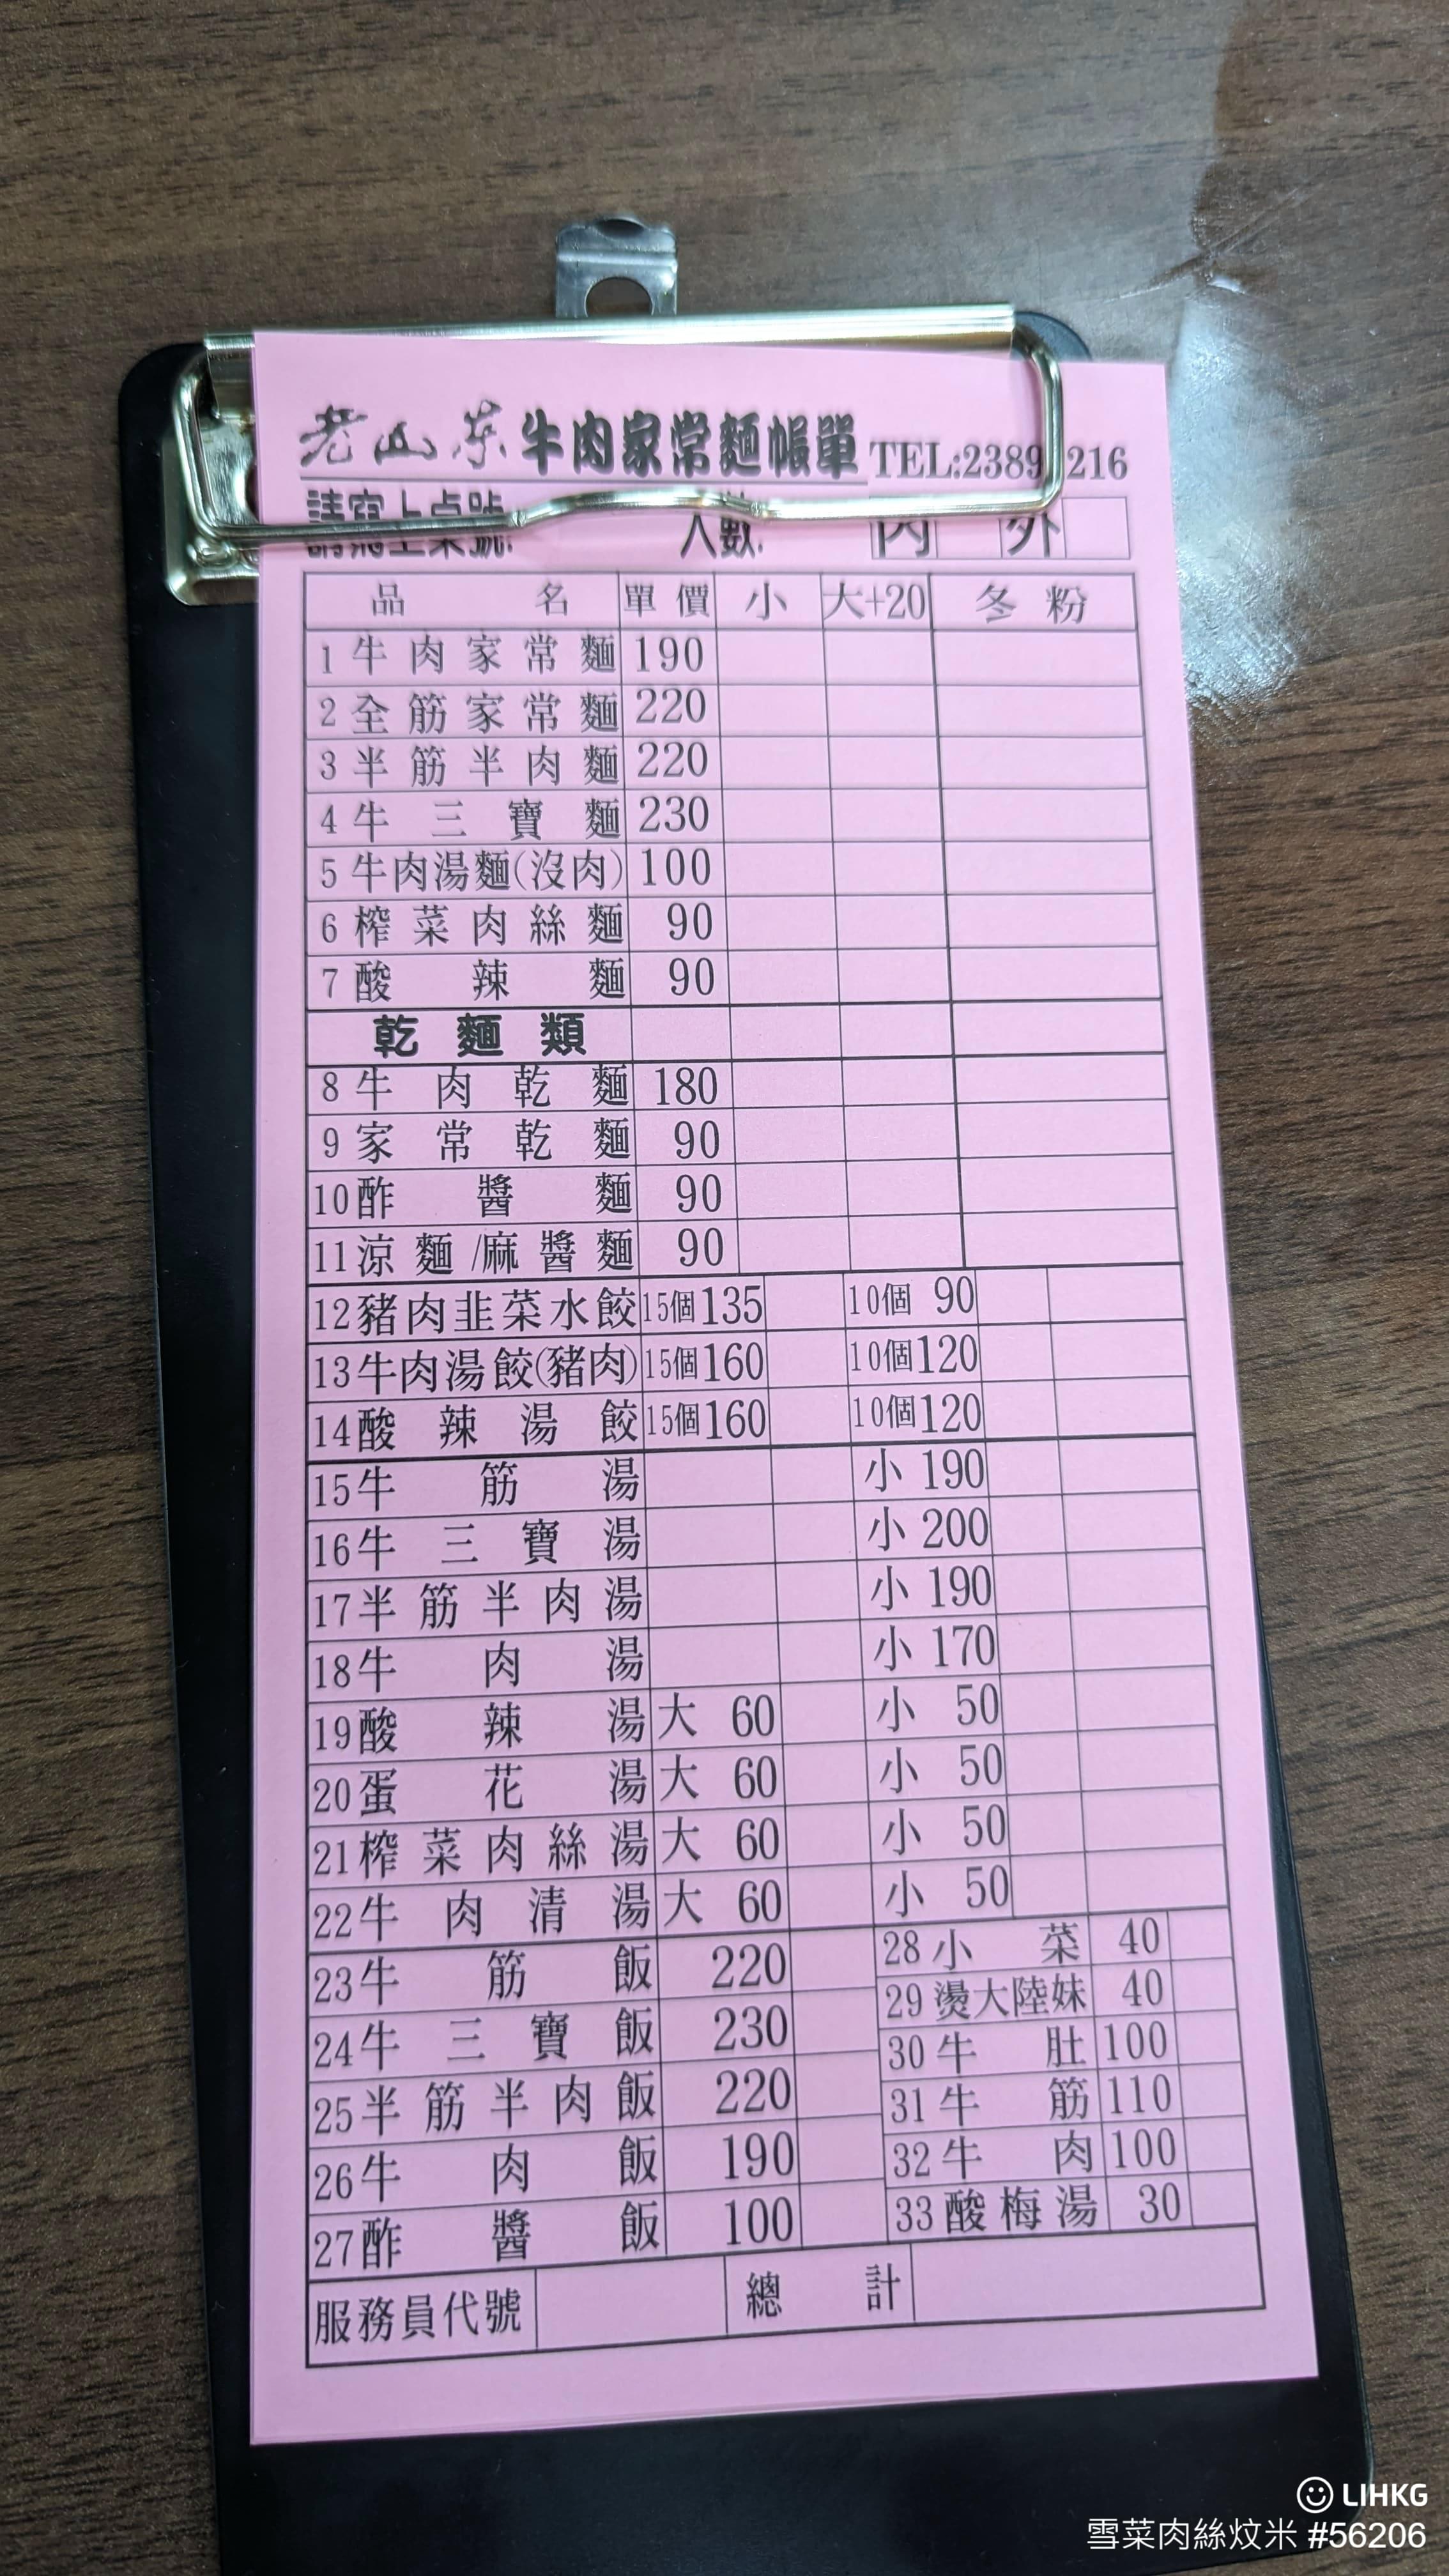 老山东牛肉家常麵帳單 TEL:2389 216
請寫上桌號: 人數: 內 外
品名 單價 小 大+20 冬粉
1 牛肉家常麵 190
2 全筋家常麵 220
3 半筋半肉麵 220
4 牛三寶麵 230
5 牛肉湯麵(沒肉) 100
6 榨菜肉絲麵 90
7 酸辣麵 90
乾麵類
8 牛肉乾麵 180
9 家常乾麵 90
10 酢醬麵 90
11 涼麵/麻醬麵 90
12 豬肉韭菜水餃 15個 135 10個 90
13 牛肉湯餃(豬肉) 15個 160 10個 120
14 酸辣湯餃 15個 160 10個 120
15 牛筋湯 小 190
16 牛三寶湯 小 200
17 半筋半肉湯 小 190
18 牛肉湯 小 170
19 酸辣湯 大 60 小 50
20 蛋花湯 大 60 小 50
21 榨菜肉絲湯 大 60 小 50
22 牛肉清湯 大 60 小 50
23 牛筋飯 220
24 牛三寶飯 230
25 半筋半肉飯 220
26 牛肉飯 190
27 酢醬飯 100
28 小菜 40
29 燙大陸妹 40
30 牛肚 100
31 牛筋 110
32 牛肉 100
33 酸梅湯 30
服務員代號 總計
LIHKG
雪菜肉絲炆米 #56206